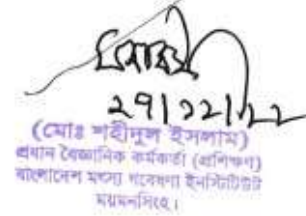 ২৭/১২/২২
(মোঃ শহীদুল ইসলাম)
প্রধান বৈজ্ঞানিক কর্মকর্তা (প্রশিক্ষণ)
বাংলাদেশ মৎস্য গবেষণা ইনস্টিটিউট
ময়মনসিংহ।